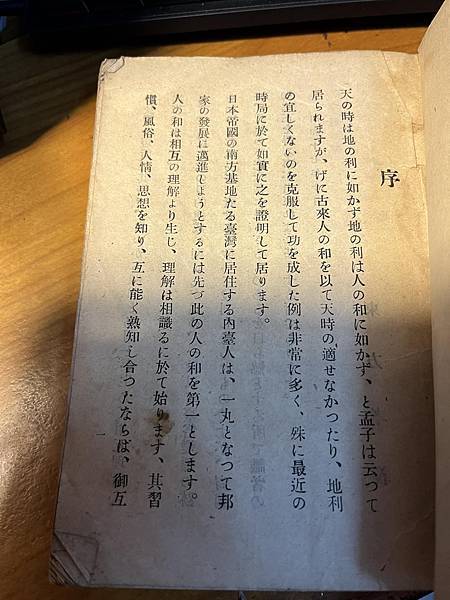 序
天の時は地の利に如かず地の利は人の和に如かず、と孟子は云つて
居られますが、げに古來人の和を以て天時の適せなかつたり、地利
の宜しくないのを克服して功を成した例は非常に多く、殊に最近の
時局に於て如實に之を證明して居ります。
日本帝國の南方基地たる臺灣に居住する內臺人は、一丸となつて邦
家の發展に邁進しようとするには先づ此の人の和を第一とします。
人の和は相互の理解より生じ、理解は相識るに於て始ります、其習
慣、風俗、人情、思想を知り、互に能く熟知し合つたならば、御互
一